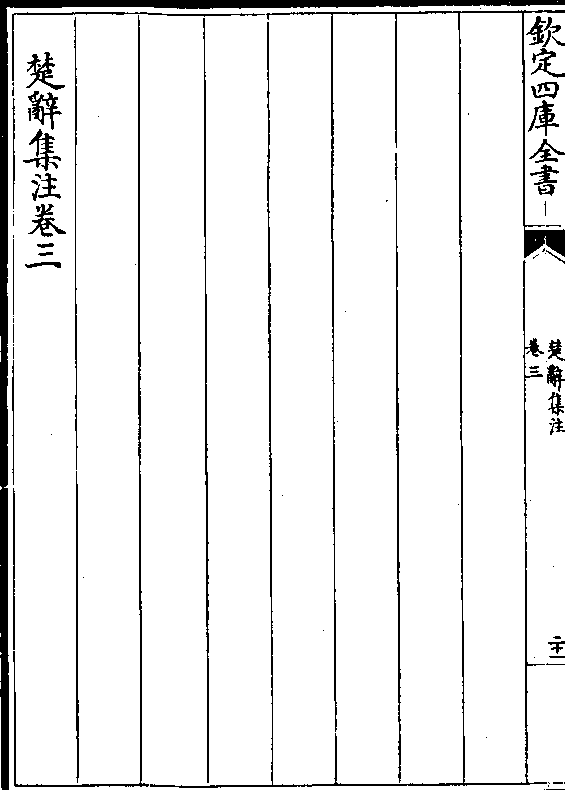 欽定四庫全書
楚辭集注
卷三
二十一
楚辭集注卷三